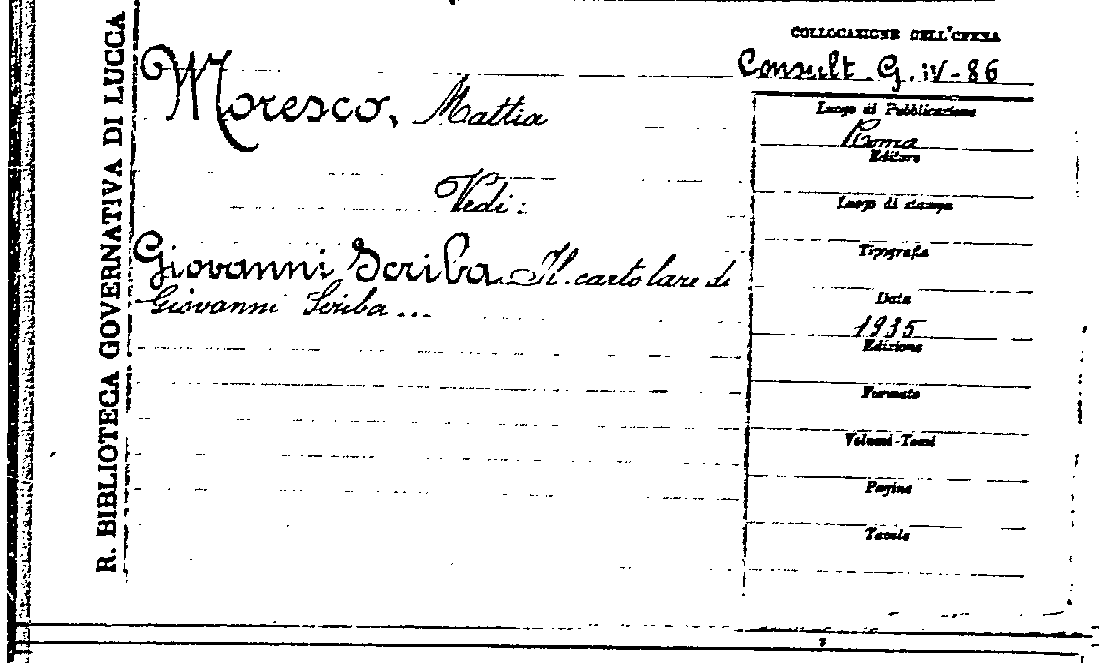 R. BIBLIOTECA GOVERNATIVA DI LUCCA
Moresco, Mattia
Vedi:
Giovanni Scriba. Il cartolare di
Giovanni Scriba...
COLLOCAZIONE DELL'OPERA
Consult. G. IV-86
Luogo di Pubblicazione
Roma
Editore
Luogo di stampa
Tipografia
Data
1935
Edizione
Formato
Volumi-Tomi
Pagine
Tavole